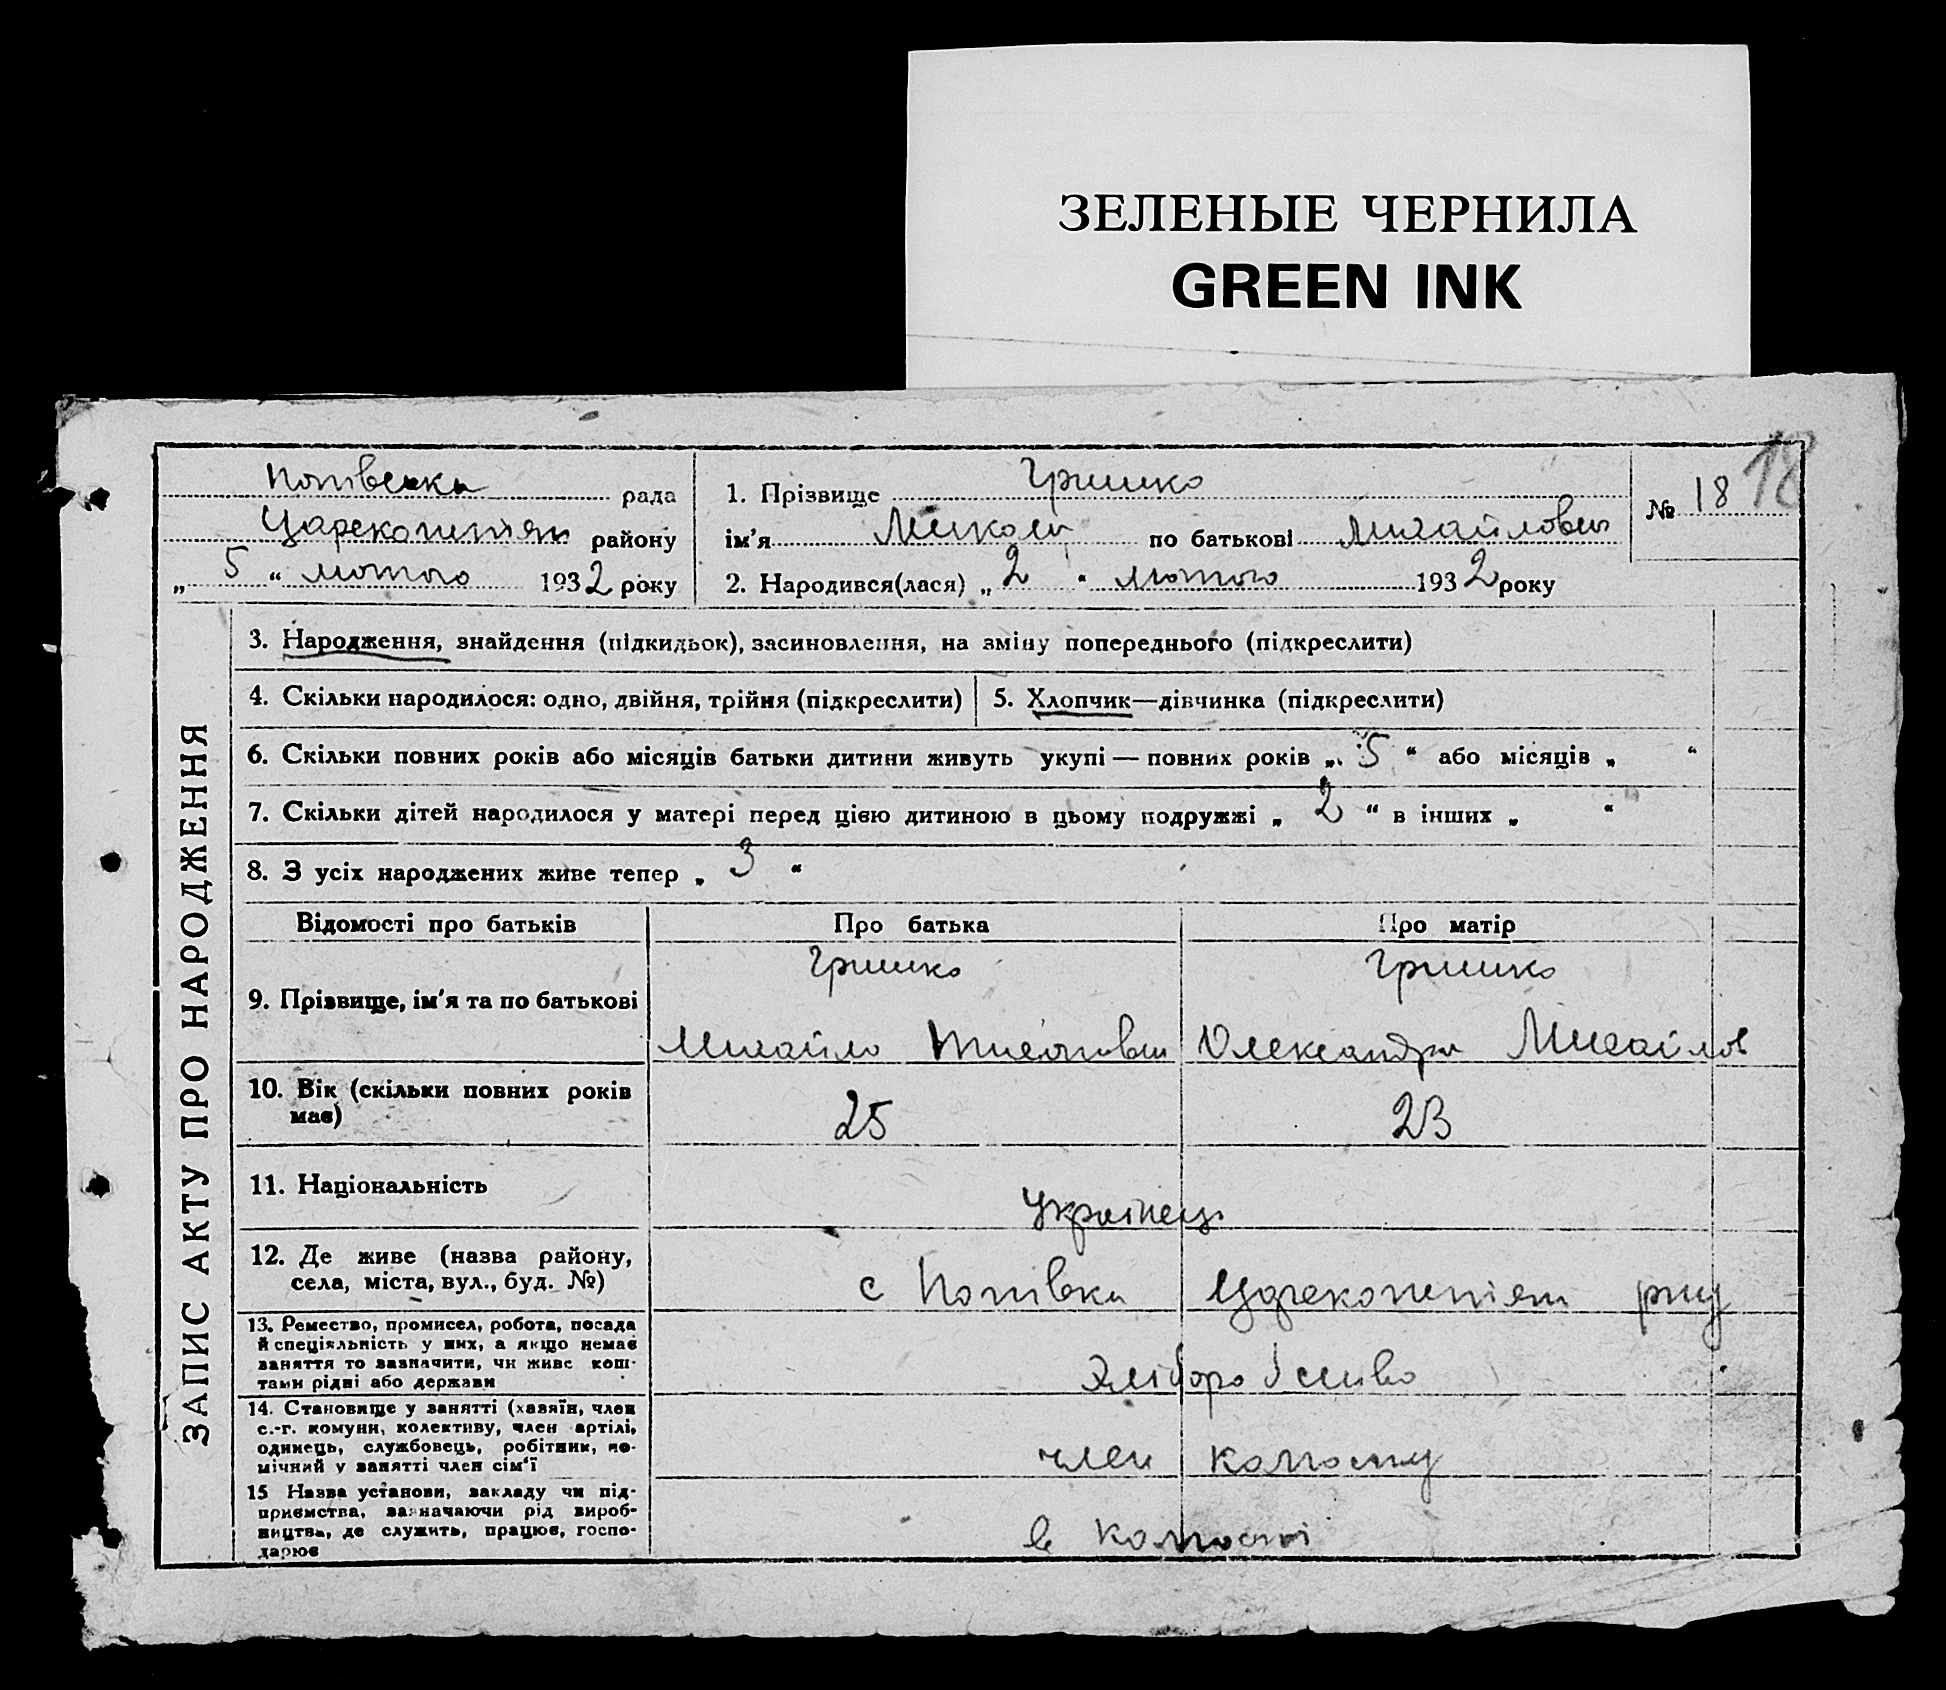 ЗЕЛЕНЫЕ ЧЕРНИЛА
GREEN INK
18
Попівська рада
району
„ 5 “ лютого 1932 року
1. Прізвище Гришко
ім'я Микола по батькові Михайлович
2. Народився(лася) „ 2 “ лютого 1932 року
№ 18
ЗАПИС АКТУ ПРО НАРОДЖЕННЯ
3. Народження, знайдення (підкидьок), засиновлення, на зміну попереднього (підкреслити)
4. Скільки народилося: одно, двійня, трійня (підкреслити)
5. Хлопчик—дівчинка (підкреслити)
6. Скільки повних років або місяців батьки дитини живуть укупі — повних років „ 5 “ або місяців „ “
7. Скільки дітей народилося у матері перед цією дитиною в цьому подружжі „ 2 “ в інших „ “
8. З усіх народжених живе тепер „ 3 “
Відомості про батьків Про батька Про матір
9. Прізвище, ім'я та по батькові
Гришко
Михайло
Гришко
Олександра Михайлов
10. Вік (скільки повних років
має)
25 23
11. Національність
Українец
12. Де живе (назва району,
села, міста, вул., буд. №)
с Попівка
13. Ремество, промисел, робота, посада
й спеціяльність у них, а якщо немає
заняття то зазначити, чи живе кош-
тами рідні або держави
Хліборобство
14. Становище у занятті (хазяїн, член
с.-г. комуни, колективу, член артілі,
одинець, службовець, робітник, по-
мічний у занятті член сім'ї
член колгоспу
15 Назва установи, закладу чи під-
приємства, зазначаючи рід вироб-
ництва, де служить, працює, госпо-
дарює
в колгоспі